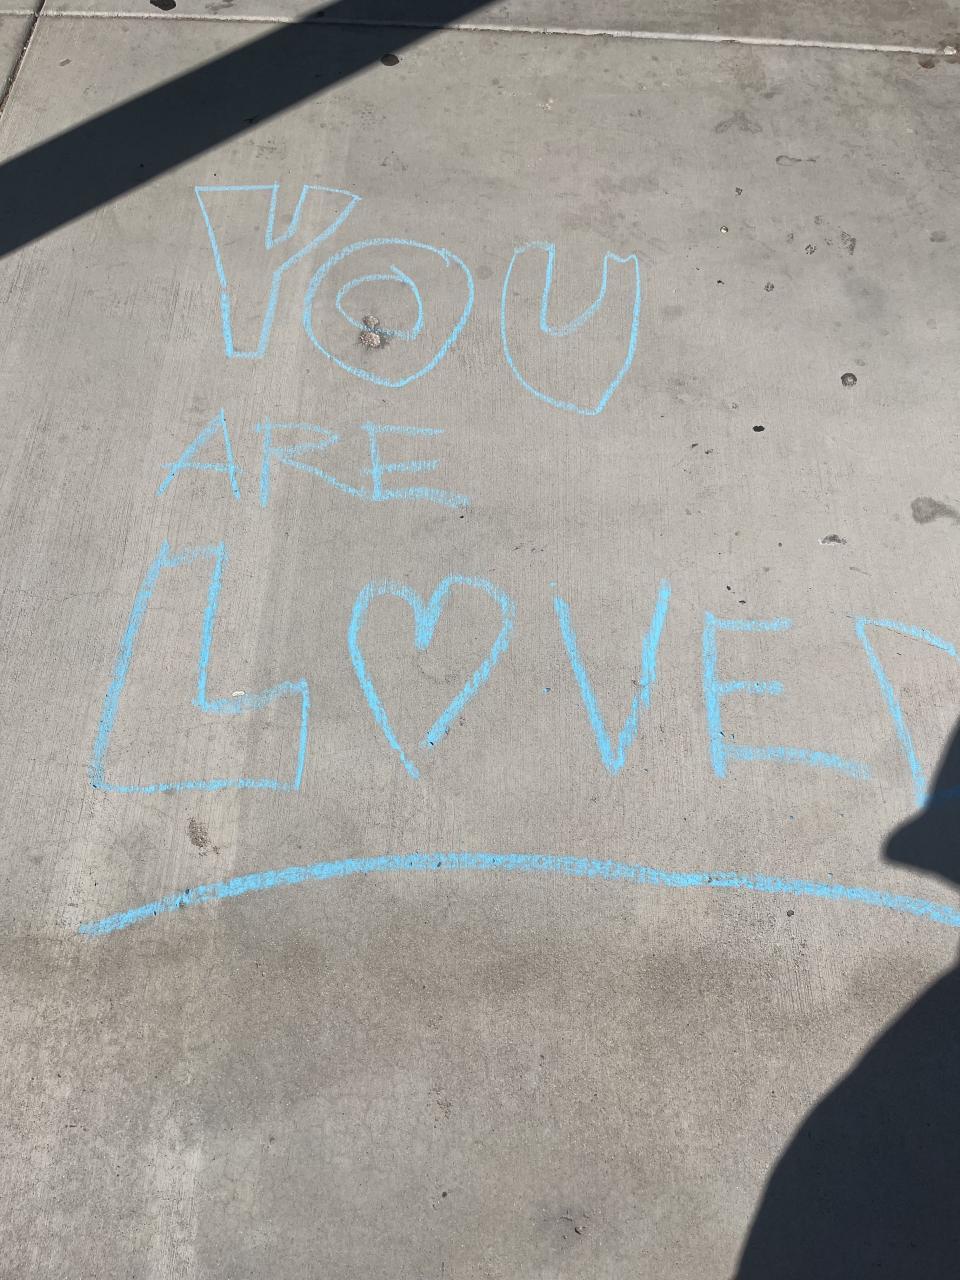 YOU
ARE
L♡VED